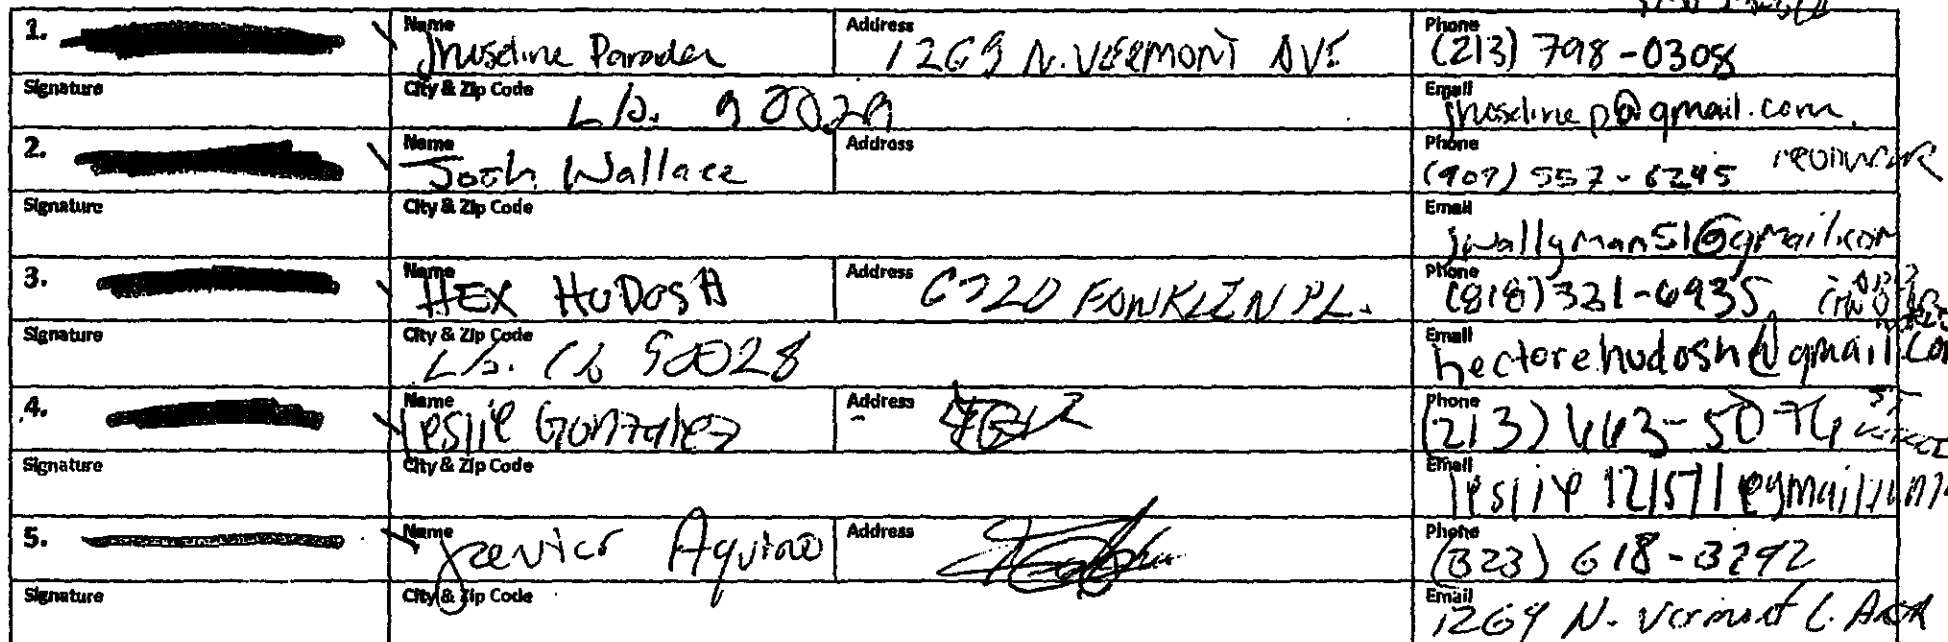 1. Name Jhoseline Parada Address 1269 N. VERMONT AVE Phone (213) 798-0308
Signature City & Zip Code L.A. 90029 Email jhoselinep@gmail.com
2. Name Josh Wallace Address Phone (909) 557-6245
Signature City & Zip Code Email jwallyman51@gmail.com
3. Name HEX HUDOSH Address FRNKLIN PL. Phone (818) 321-6935
Signature City & Zip Code L.A. CA 90028 Email hectorehudosh@gmail.com
4. Name leslie Gonzalez Address Phone (213)
Signature City & Zip Code Email
5. Name Aquino Address Phone (323) 618-3292
Signature City & Zip Code Email 1269 N. Vermont